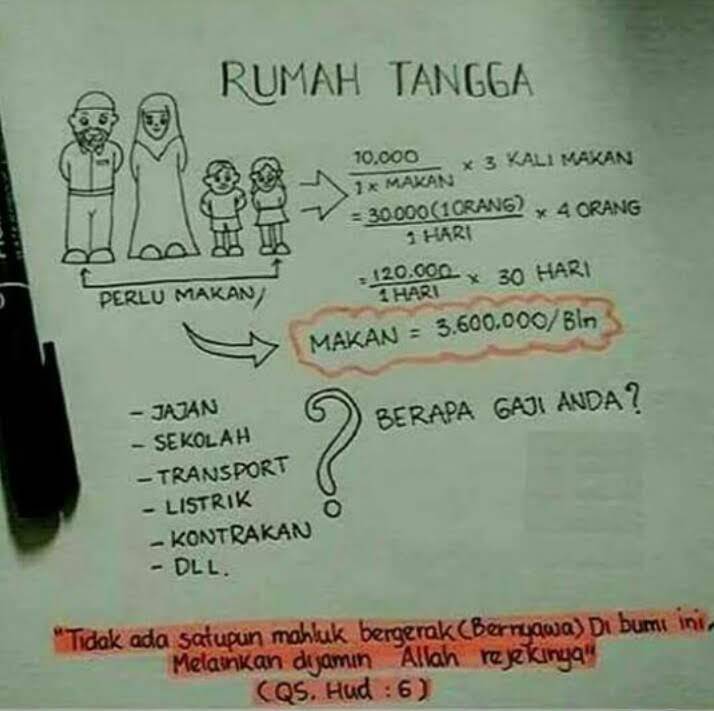 RUMAH TANGGA
10.000 × 3 KALI MAKAN
1 × MAKAN
= 30.000 (1 ORANG) × 4 ORANG
1 HARI
= 120.000 × 30 HARI
1 HARI
PERLU MAKAN
MAKAN = 3.600.000/Bln
BERAPA GAJI ANDA?
- JAJAN
- SEKOLAH
- TRANSPORT
- LISTRIK
- KONTRAKAN
- DLL.
?
"Tidak ada satupun mahluk bergerak (Bernyawa) Di bumi ini,
Melainkan dijamin Allah rejekinya"
(QS. Hud : 6)